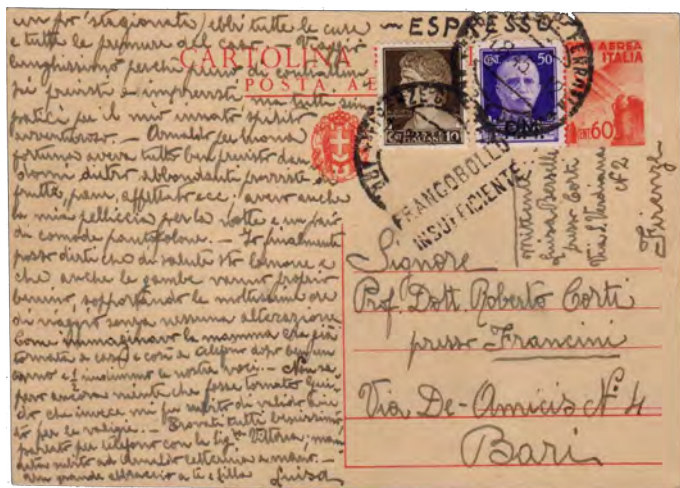 un po' stagionata) ebbi tutte le cure
e tutte le premure del caso — Viaggio
lunghissimo perchè pieno di contrattempi
più previsti e imprevisti, ma tutti sim
patici per il mio innato spirito
avventuroso. — Arnaldo per buona
fortuna aveva tutto ben previsto dan
domi dietro abbondanti provviste di
frutta, pane, affettato ecc; avevo anche
la mia pelliccia per la notte e un paio
di comode pantofolone. — Io finalmente
posso dirti che di salute sto benone e
che anche le gambe vanno proprio
benino, sopportando le moltissime ore
di viaggio senza nessuna alterazione
Come immaginavo la mamma era già
tornata a casa e così a dopo ben un
anno e ½ riudimmo le nostre voci. — Non sa
pevo ancora niente che fosse tornato Gui
do che invece mi fu subito di valido aiu
to per le valigie. — Trovati tutti benissimo
parlato per telefono con la Sig.ra Vittoria, man
detti subito ad Arnaldo letterina a mano. —
Un grande abbraccio a te e Lilla Luisa
~ ESPRESSO ~
CARTOLINA
POSTA. AE
10
CENT. 50
AEREA
ITALIA
CENT 60
FRANCOBOLLO
INSUFFICIENTE
mittente
Luisa
presso Corti
Via S.
N° 2
Firenze
Signore
Prof. Dott. Roberto Corti
presso Francini
Via De-Amicis N° 4
Bari